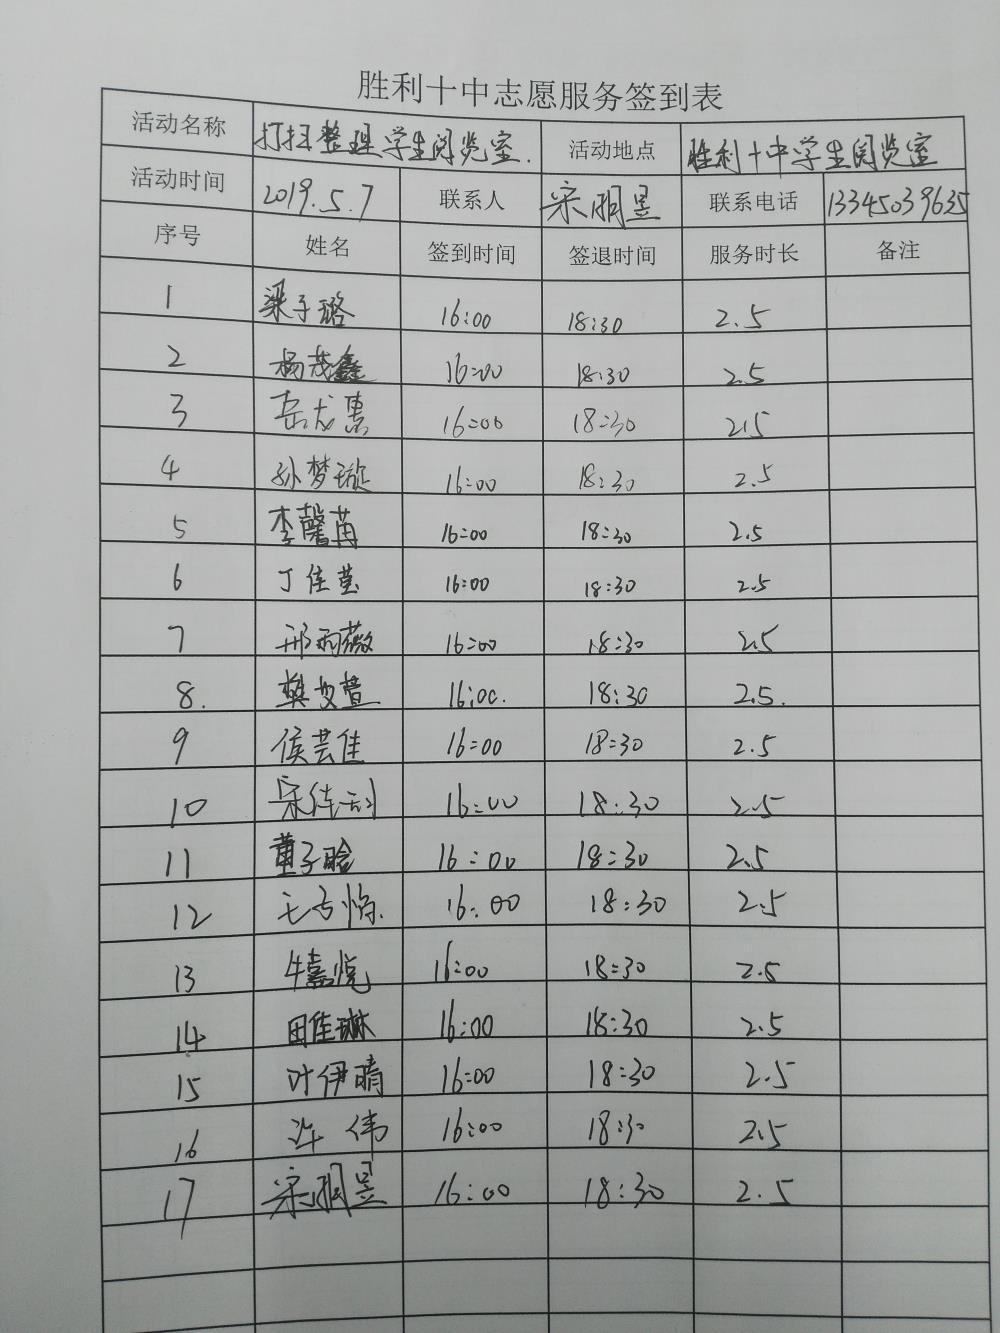 胜利十中志愿服务签到表
活动名称 打扫整理学生阅览室. 活动地点 胜利十中学生阅览室
活动时间 2019.5.7 联系人 宋 昱 联系电话 13345039635
序号 姓名 签到时间 签退时间 服务时长 备注
1 梁子璐 16:00 18:30 2.5
2 杨茂鑫 16:00 18:30 2.5
3 岳龙惠 16:00 18:30 2.5
4 孙梦璇 16:00 18:30 2.5
5 李馨苒 16:00 18:30 2.5
6 丁佳莹 16:00 18:30 2.5
7 邢雨薇 16:00 18:30 2.5
8. 樊文萱 16:00. 18:30 2.5.
9 侯芸佳 16:00 18:30 2.5
10 宋 16:00 18:30 2.5
11 董子晗 16:00 18:30 2.5
12 16:00 18:30 2.5
13 牛嘉悦 16:00 18:30 2.5
14 田佳琳 16:00 18:30 2.5
15 叶伊晴 16:00 18:30 2.5
16 许伟 16:00 18:30 2.5
17 宋 昱 16:00 18:30 2.5